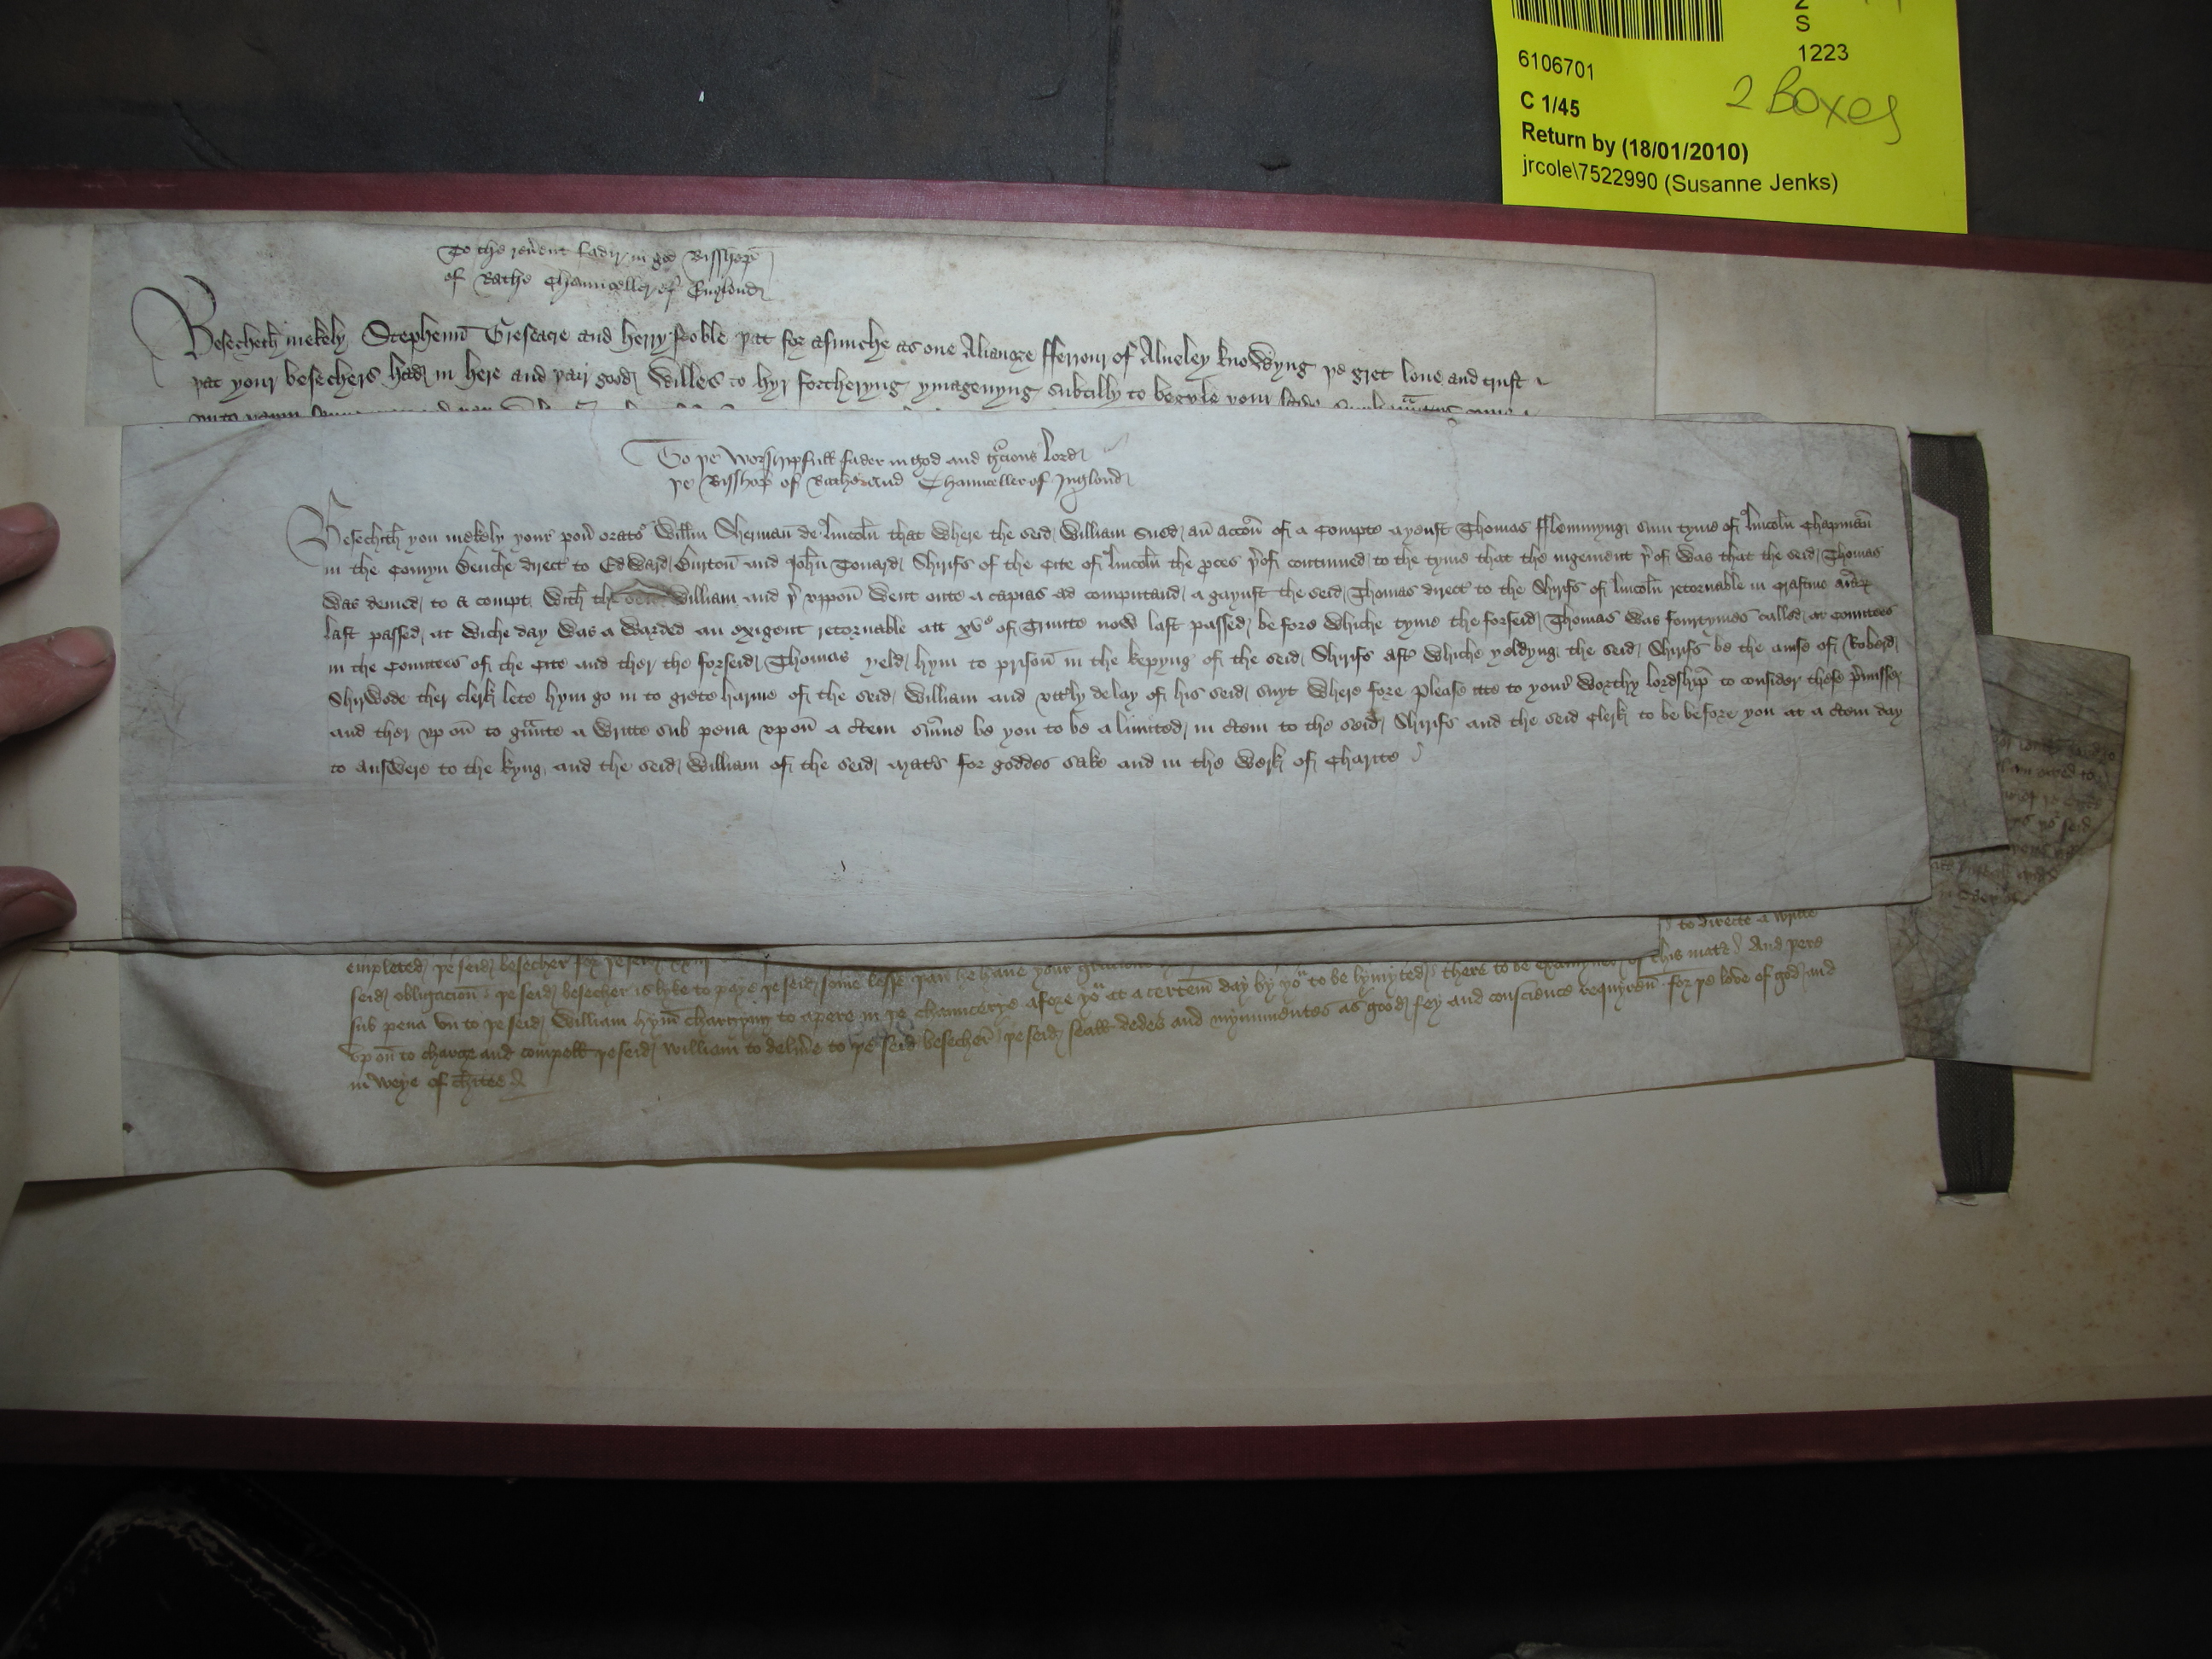 2
S
1223
6106701
2 Boxes
C 1/45
Return by (18/01/2010)
jrcole\7522990 (Susanne Jenks)
To the reu'ent fadir in god Bisshop
of Bathe Chaunceller of Englond
Besecheth mekely Stephenn and herry that for asmuche as one fferrour of Alueley knowyng þe gret loue and trust
þat your besechers had in here and þair good Willes to hyr fortheryng ymagenyng subtilly to begyle your
To þe Worshipfull fader in god and gracious lord
þe Bisshop of Bathe and Chaunceller of Inglond
Besechith you mekely your pou' orato' Will'm Sherman de lincoln that where the seid William sued an accon' of a Compte ayenst Thomas fflemmyng sum tyme of lincoln Chapman
in the Comyn benche direct to Edward Burton and John Shirifs of the Cite of lincoln the p'ces þ'of continued to the tyme that the iugement þ'of was that the seid Thomas
was demed to a compt with the seid William and þ' vppon went oute a capias ad computand a gaynst the seid Thomas direct to the Shirifs of lincoln retornable in crastino
last passed at wiche day was a warded an exigent retornable att xv of Trinite now last passed be fore whiche tyme the forseid Thomas was fourtymes called at Countees
in the Countees of the Cite and ther the forseid Thomas yeld hym to prison in the kepyng of the seid Shirifs aft' whiche yeldyng the seid Shirifs be the auise of Roberd
Shirwode ther clerk lete hym go in to grete harme of the seid William and vtt'ly delay of his seid suyt Where fore please itt to your worthy lordship to consider these p'misses
and ther vp on to graunte a writte sub pena vpon a c'tem sume be you to be a limited in c'tem to the seid Shirifs and the seid Clerk to be before you at a c'tem day
to answere to the kyng and the seid William of the seid mat's for goddes sake and in the Werk of Charite
to directe a writte
empleted þe seid besecher for þe seid
seid obligacion þe seid besecher is lyke to paye þe seid some lesse þan he haue your gracious
sub pena vn to þe seid William hym chargyng to apere in þe chauncerye afore yo'u at a certein day by yo'u to be lymyted there to be examyned of this mat'e And þere
vp on to charge and compell þe seid William to delyu'e to þe seid besecher þe seid seall dedes and mynumentes as good fey and conscience requyren for þe love of god and
in weye of ch'itee